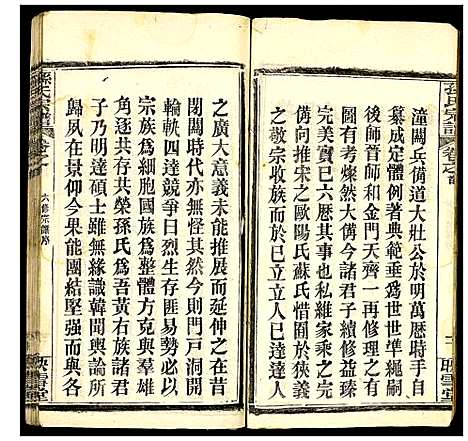 潼關兵備道大壯公於明萬曆時手自
纂成定體例著典範垂爲世世準繩嗣
後師晉師和金門天齊一再修理之有
完美寶已六曆其事今諸君子續修益臻
於備粲然大備今諸君子續修益臻
完美實已六曆其事私維家乘之完
備可推宋之歐陽氏蘇氏惜囿於狹義
之敬宗收族而於已立立人已達達人
之廣大意義未能推展而延伸之在昔
閉關時代亦無怪其然則門戸洞開
輪軼四達競爭日烈生存匪易勢必以
宗族為基礎以民族為整體方克與羣雄
角逐共存共榮孫氏為吾黃右族諸君
子乃明達碩士雖無緣識韓聞輿論所
歸夙在景仰今果能團結堅强而與各
孫氏宗譜
卷之一
六修宗譜序
映雪堂
孫氏宗譜
映雪堂